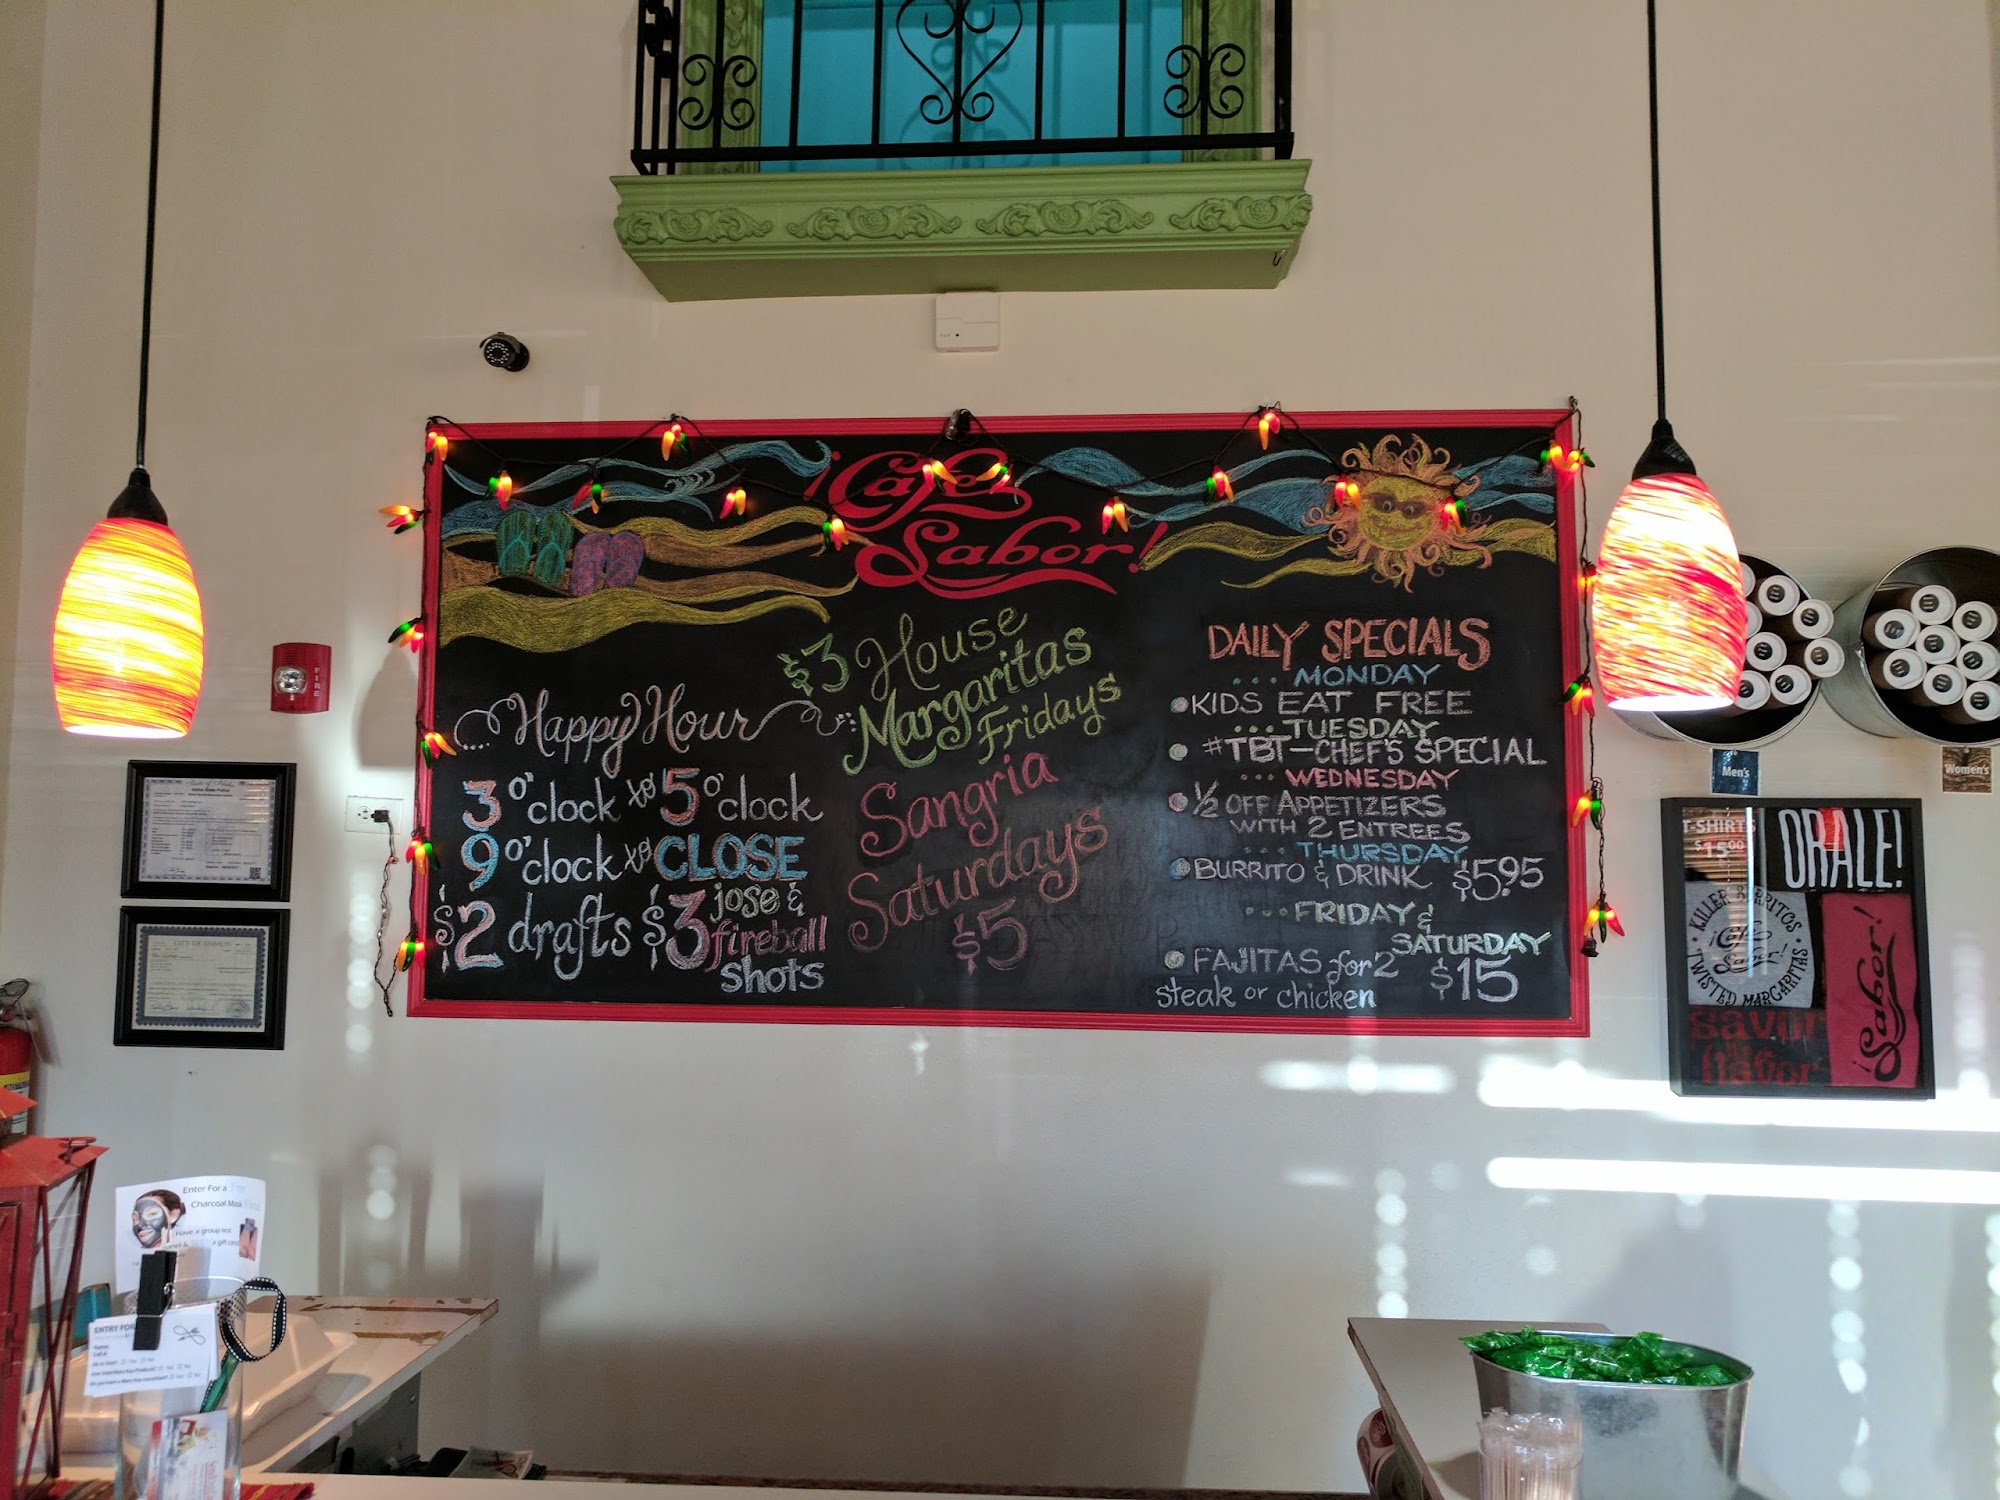 ¡Cafe
Sabor!
$3 House
Margaritas
Fridays
Sangria
Saturdays
$5
Happy Hour
3 o'clock to 5 o'clock
9 o'clock to CLOSE
$2 drafts $3 jose &
fireball
shots
DAILY SPECIALS
... MONDAY
KIDS EAT FREE
... TUESDAY
#TBT-CHEF'S SPECIAL
... WEDNESDAY
½ OFF APPETIZERS
WITH 2 ENTREES
... THURSDAY
BURRITO & DRINK $5.95
... FRIDAY &
SATURDAY
FAJITAS for 2
steak or chicken $15
FIRE
CITY OF AMMON
Men's
Women's
T-SHIRTS
$15.00
ORALE!
KILLER BURRITOS
¡Cafe
Sabor!
TWISTED MARGARITAS
savor
flavor
¡Sabor!
Enter For a
Charcoal Mask
Have a group
a gift
ENTRY FOR
Name: